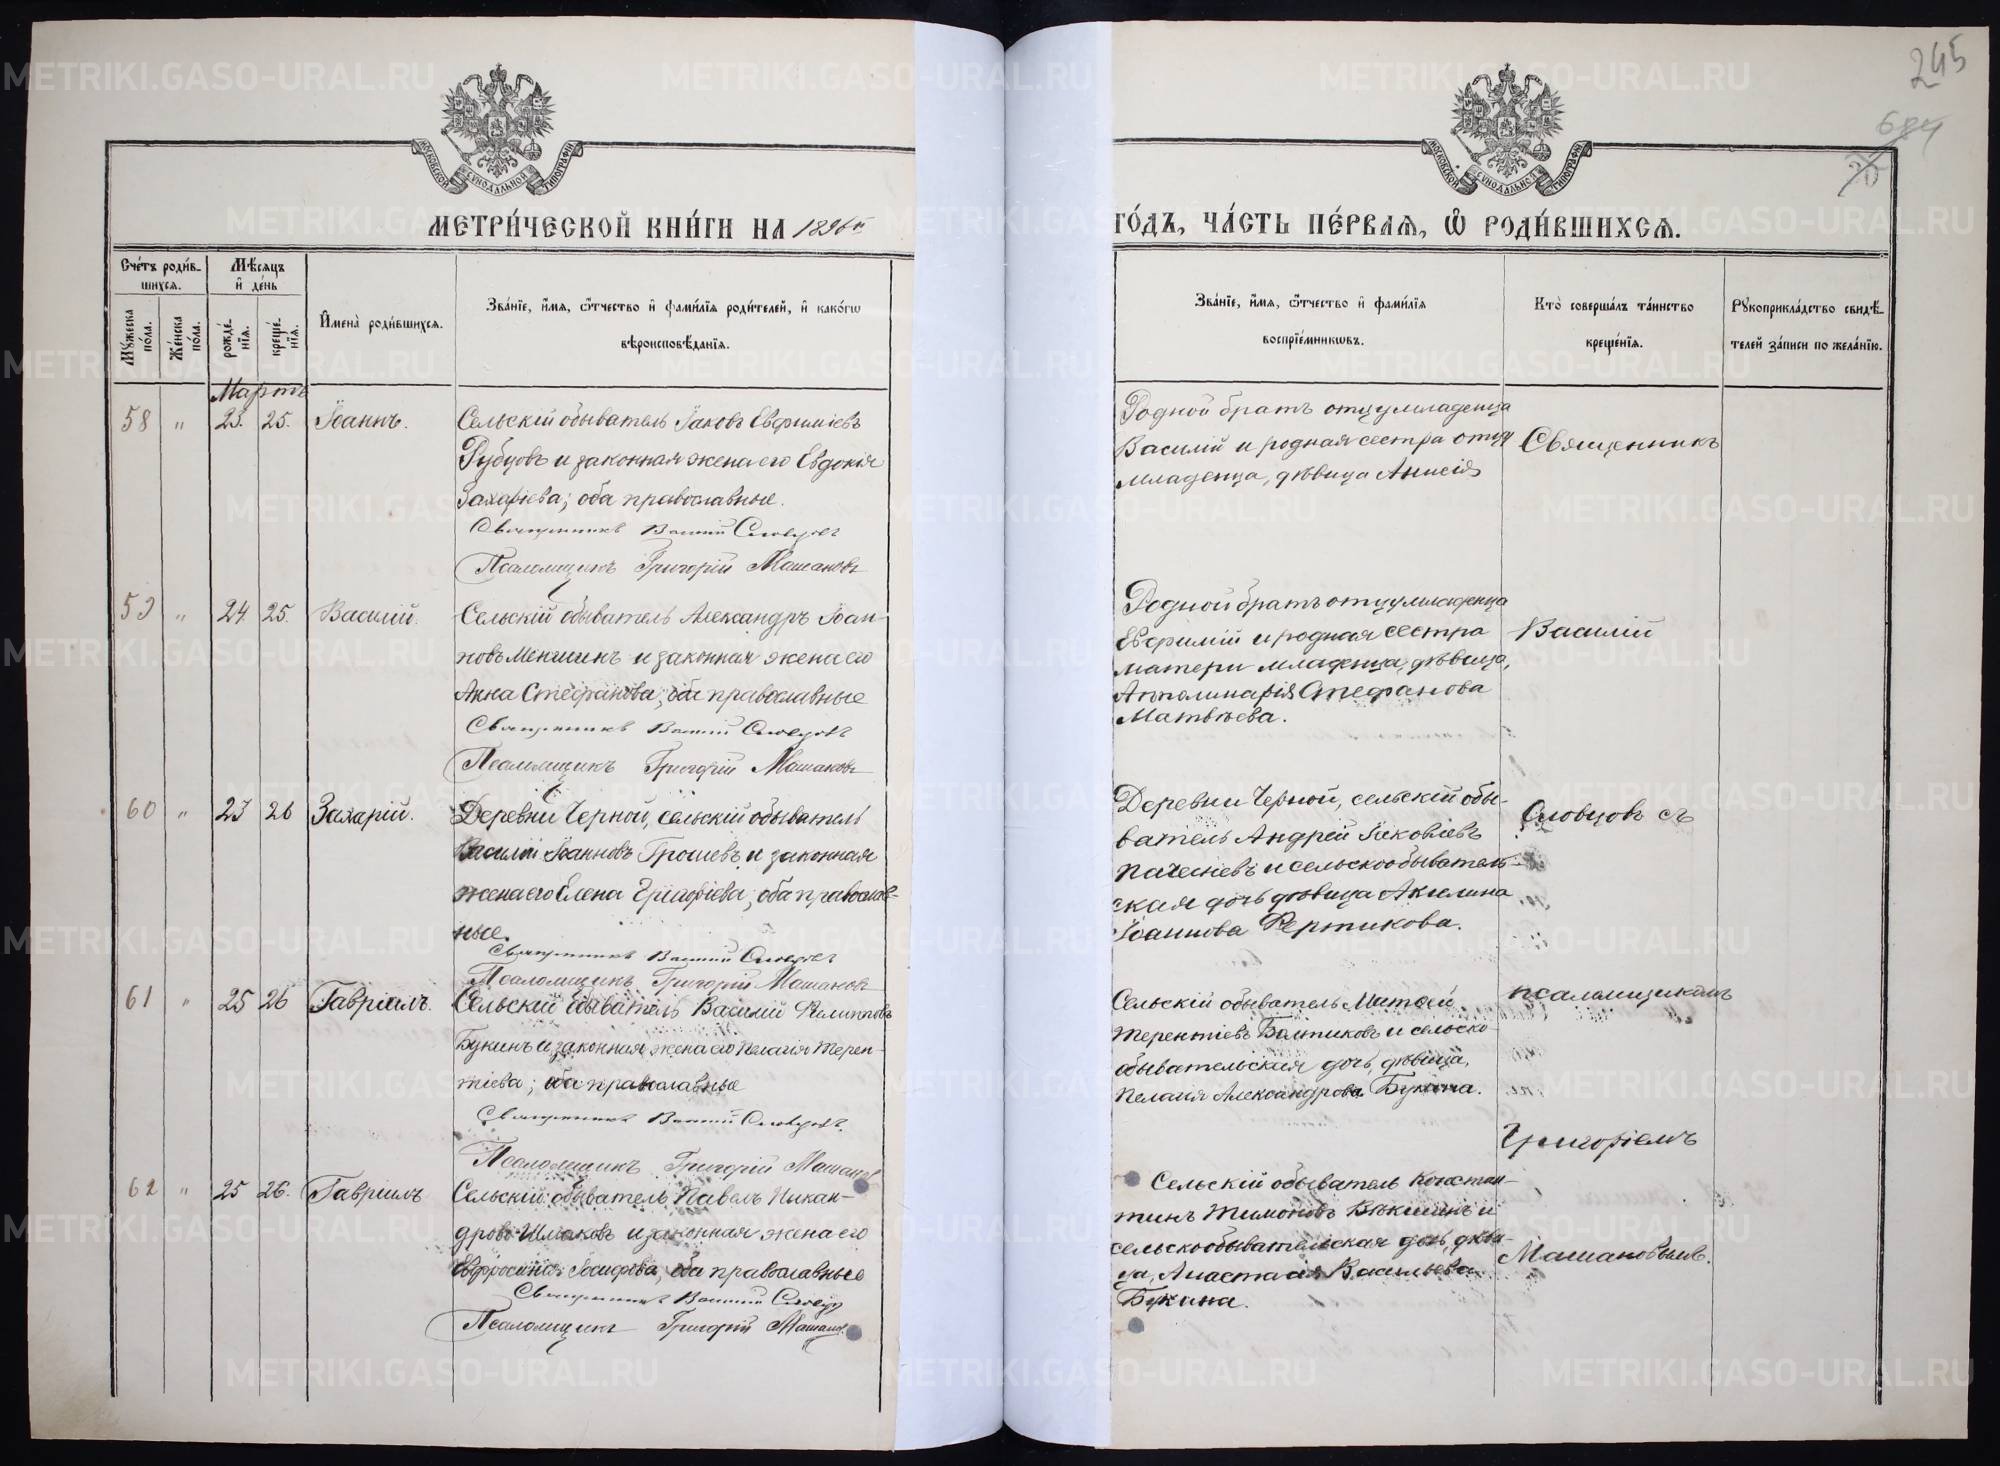 245
684
20
МОСКОВСКОЙ СУНОДАЛЬНОЙ ТИПОГРАФІИ
МОСКОВСКОЙ СУНОДАЛЬНОЙ ТИПОГРАФІИ
МЕТРИ́ЧЕСКОЙ КНИ́ГИ НА 1896й
ГО́ДЪ, ЧА́СТЬ ПЕ́РВАЯ, Ѡ РОДИ́ВШИХСЯ.
Сче́тъ роди́в-
шихся.
Мѣ́сяцъ
и҆ де́нь
Мꙋ́жеска по́ла.
Же́нска по́ла.
рожде́нїя.
креще́нїя.
И҆мена̀ роди́вшихся.
Зва́нїе, и҆́мя, ѻ҆́тчество и҆ фами́лїя роди́телей, и҆ како́гѡ
вѣроисповѣ́данїя.
Зва́нїе, и҆́мя, ѻ҆́тчество и҆ фами́лїя
воспрїе́мникѡвъ.
Кто̀ соверша́лъ та́инство
креще́нїя.
Рꙋкоприкла́дство свидѣ́-
телей за́писи по жела́нїю.
Мартъ
58 " 23. 25. Іоаннъ.
Сельскій обыватель Іаковъ Евфиміевъ
Рубцовъ и законная жена его Евдокія
Захаріева; оба православные.
Священникъ Василій Словцовъ
Псаломщикъ Григорій Машановъ
Родной братъ отцу младенца
Василій и родная сестра отцу
младенца, дѣвица Анисія
Священникъ
59 " 24. 25. Василій.
Сельскій обыватель Александръ Іоан-
новъ Меншинъ и законная жена его
Анна Стефанова; оба православные
Священникъ Василій Словцовъ
Псаломщикъ Григорій Машановъ
Родной братъ отцу младенца
Евфимій и родная сестра
матери младенца, дѣвица,
Апполинарія Стефанова
Матвѣева.
Василій
60 " 23 26 Захарій.
Деревни Черной, сельскій обыватель
Василій Іоанновъ Грошевъ и законная
жена его Елена Григоріева; оба православ-
ные.
Священникъ Василій Словцовъ
Псаломщикъ Григорій Машановъ
Деревни Черной, сельскій обы-
ватель Андрей Іаковлевъ
и сельскообыватель-
ская дочь дѣвица Акилина
Іоаннова Фертикова.
Словцовъ съ
61 " 25 26 Гавріилъ.
Сельскій обыватель Василій Филипповъ
Букинъ и законная жена его Пелагія Терен-
тіева; оба православные
Священникъ Василій Словцовъ.
Псаломщикъ Григорій Машановъ
Сельскій обыватель
Терентіевъ Болтиковъ и сельско-
обывательская дочь, дѣвица,
Пелагія Александрова Букина.
псаломщикомъ
Григоріемъ
62 " 25 26. Гавріилъ
Сельскій обыватель Павелъ Никан-
дровъ Шлыковъ и законная жена его
Евфросинія Іосифова; оба православные
Священникъ Василій Словцовъ
Псаломщикъ Григорій Машанов.
Сельскій обыватель Констан-
тинъ Тимоновъ Вѣкшинъ и
сельскообывательская дочь, дѣви-
ца, Анастасія Васильева
Букина.
Машановымъ.
METRIKI.GASO-URAL.RU